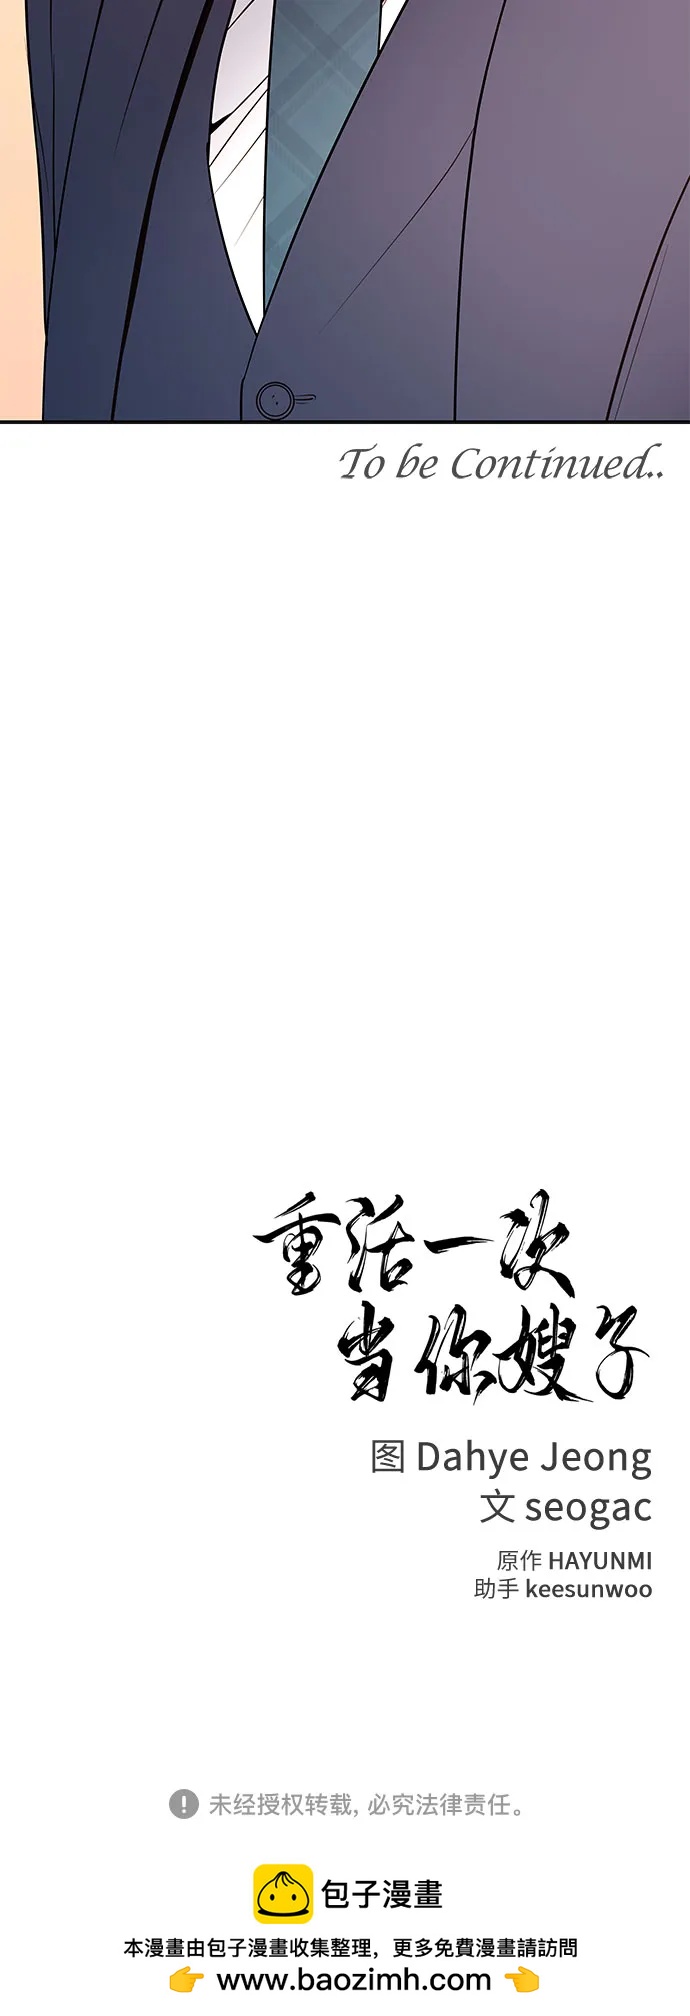 To be Continued..
重活一次
当你嫂子
图 Dahye Jeong
文 seogac
原作 HAYUNMI
助手 keesunwoo
未经授权转载, 必究法律责任。
包子漫畫
本漫畫由包子漫畫收集整理，更多免費漫畫請訪問
👉 www.baozimh.com 👈